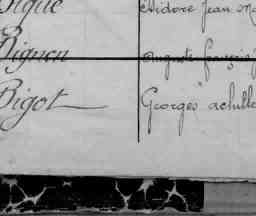 Isidore Jean
Bignon Auguste françois
Bigot Georges achille